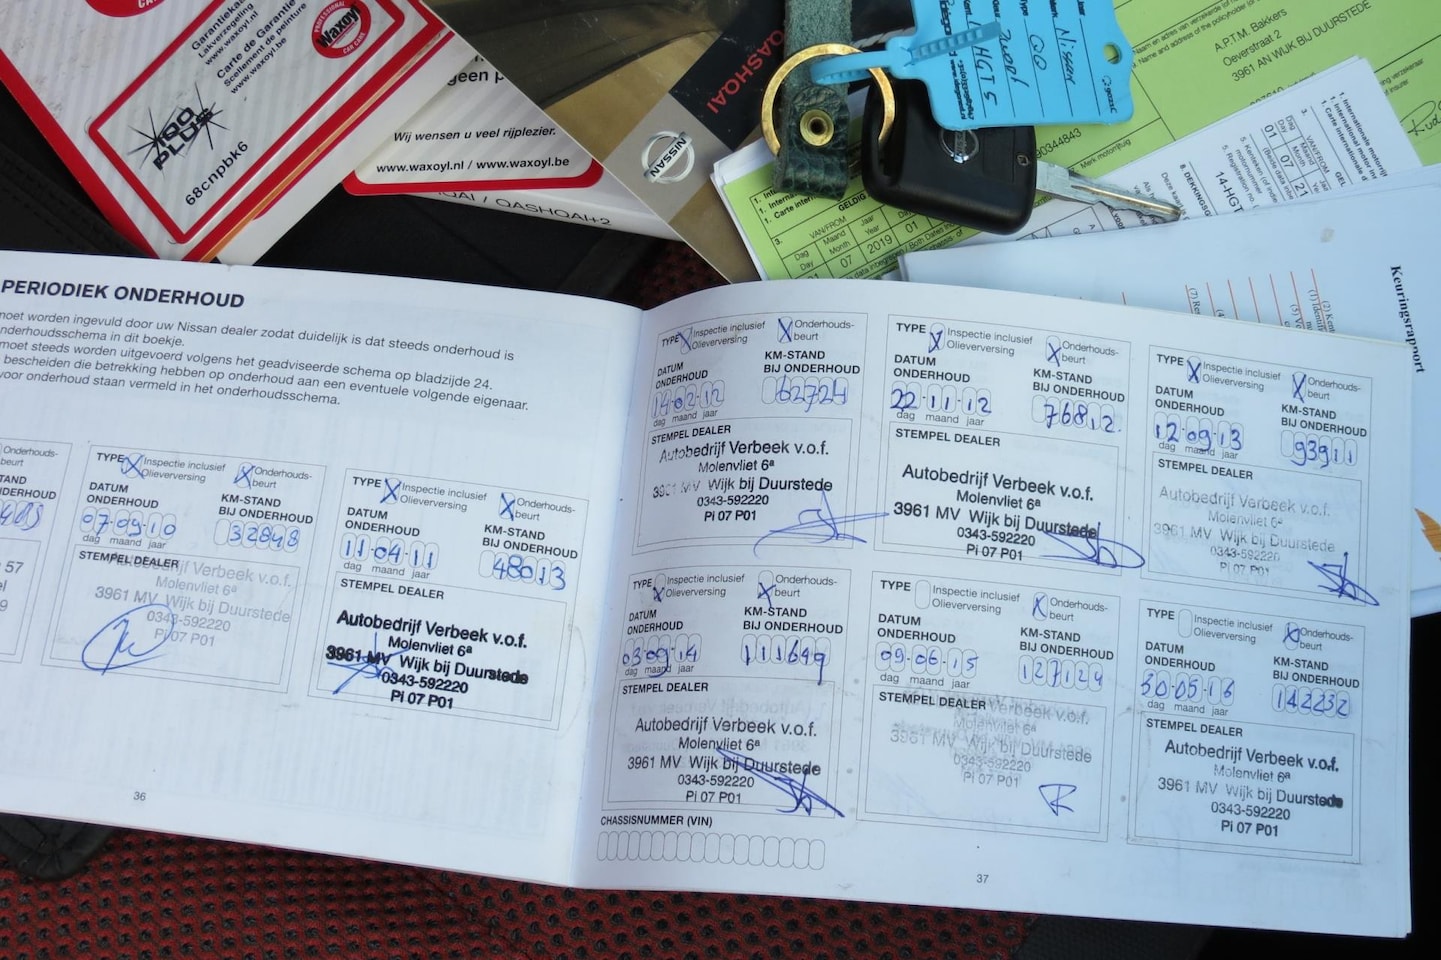 Garantiekaart
Lakverzegeling
www.waxoyl.nl
Carte de Garantie
Scellement de peinture
www.waxoyl.be
PROFESSIONAL
Waxoyl
CAR CARE
100 PLUS
68cnpbk6
geen p
Wij wensen u veel rijplezier.
www.waxoyl.nl / www.waxoyl.be
QAI / QASHQAI+2
QASHQAI
NISSAN
Nissan
QQ
Zwart
HGT 5
Naam en adres van verzekerde of
Name and address of the policyholder (or
A.P.T.M. Bakkers
Oeverstraat 2
3961 AN WIJK BIJ DUURSTEDE
90344843
Merk motorrijtuig
GELDIG
VAN/FROM
Dag Maand Jaar
Day Month Year
01 07 2019 01
VAN/FROM
Dag Maand
Day Month
01 07 21
14-HGT
Keuringsrapport
PERIODIEK ONDERHOUD
moet worden ingevuld door uw Nissan dealer zodat duidelijk is dat steeds onderhoud is
nderhoudsschema in dit boekje.
moet steeds worden uitgevoerd volgens het geadviseerde schema op bladzijde 24.
bescheiden die betrekking hebben op onderhoud aan een eventuele volgende eigenaar.
voor onderhoud staan vermeld in het onderhoudsschema.
Onderhouds-
beurt
STAND
NDERHOUD
TYPE X Inspectie inclusief Olieverversing X Onderhouds-beurt
DATUM ONDERHOUD KM-STAND BIJ ONDERHOUD
07-09-10 32848
dag maand jaar
STEMPEL DEALER
Autobedrijf Verbeek v.o.f.
Molenvliet 6ª
3961 MV Wijk bij Duurstede
0343-592220
Pi 07 P01
TYPE X Inspectie inclusief Olieverversing X Onderhouds-beurt
DATUM ONDERHOUD KM-STAND BIJ ONDERHOUD
11-04-11 48013
dag maand jaar
STEMPEL DEALER
Autobedrijf Verbeek v.o.f.
Molenvliet 6ª
3961 MV Wijk bij Duurstede
0343-592220
Pi 07 P01
36
TYPE X Inspectie inclusief Olieverversing X Onderhouds-beurt
DATUM ONDERHOUD KM-STAND BIJ ONDERHOUD
14-02-12 62724
dag maand jaar
STEMPEL DEALER
Autobedrijf Verbeek v.o.f.
Molenvliet 6ª
3961 MV Wijk bij Duurstede
0343-592220
Pi 07 P01
TYPE X Inspectie inclusief Olieverversing X Onderhouds-beurt
DATUM ONDERHOUD KM-STAND BIJ ONDERHOUD
22-11-12 76812
dag maand jaar
STEMPEL DEALER
Autobedrijf Verbeek v.o.f.
Molenvliet 6ª
3961 MV Wijk bij Duurstede
0343-592220
Pi 07 P01
TYPE X Inspectie inclusief Olieverversing X Onderhouds-beurt
DATUM ONDERHOUD KM-STAND BIJ ONDERHOUD
12-09-13 93911
dag maand jaar
STEMPEL DEALER
Autobedrijf Verbeek v.o.f.
Molenvliet 6ª
3961 MV Wijk bij Duurstede
0343-592220
Pi 07 P01
TYPE X Inspectie inclusief Olieverversing X Onderhouds-beurt
DATUM ONDERHOUD KM-STAND BIJ ONDERHOUD
03-09-14 111649
dag maand jaar
STEMPEL DEALER
Autobedrijf Verbeek v.o.f.
Molenvliet 6ª
3961 MV Wijk bij Duurstede
0343-592220
Pi 07 P01
TYPE Inspectie inclusief Olieverversing X Onderhouds-beurt
DATUM ONDERHOUD KM-STAND BIJ ONDERHOUD
09-06-15 127124
dag maand jaar
STEMPEL DEALER
Autobedrijf Verbeek v.o.f.
Molenvliet 6ª
3961 MV Wijk bij Duurstede
0343-592220
Pi 07 P01
TYPE Inspectie inclusief Olieverversing X Onderhouds-beurt
DATUM ONDERHOUD KM-STAND BIJ ONDERHOUD
30-05-16 142232
dag maand jaar
STEMPEL DEALER
Autobedrijf Verbeek v.o.f.
Molenvliet 6ª
3961 MV Wijk bij Duurstede
0343-592220
Pi 07 P01
CHASSISNUMMER (VIN)
37